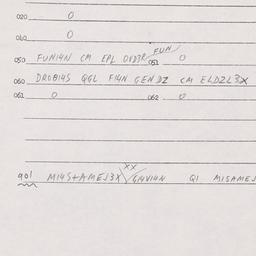 020 0
040 0
050 FUNI4N CM EPL OVDTR FUN 051 0
060 DROBI4S QGL FI4N GENDZ CM ELDZL3X
061 0 062 0
901 MI4S+AMEJ3X XX GI4VI4N QI MISAMEJ